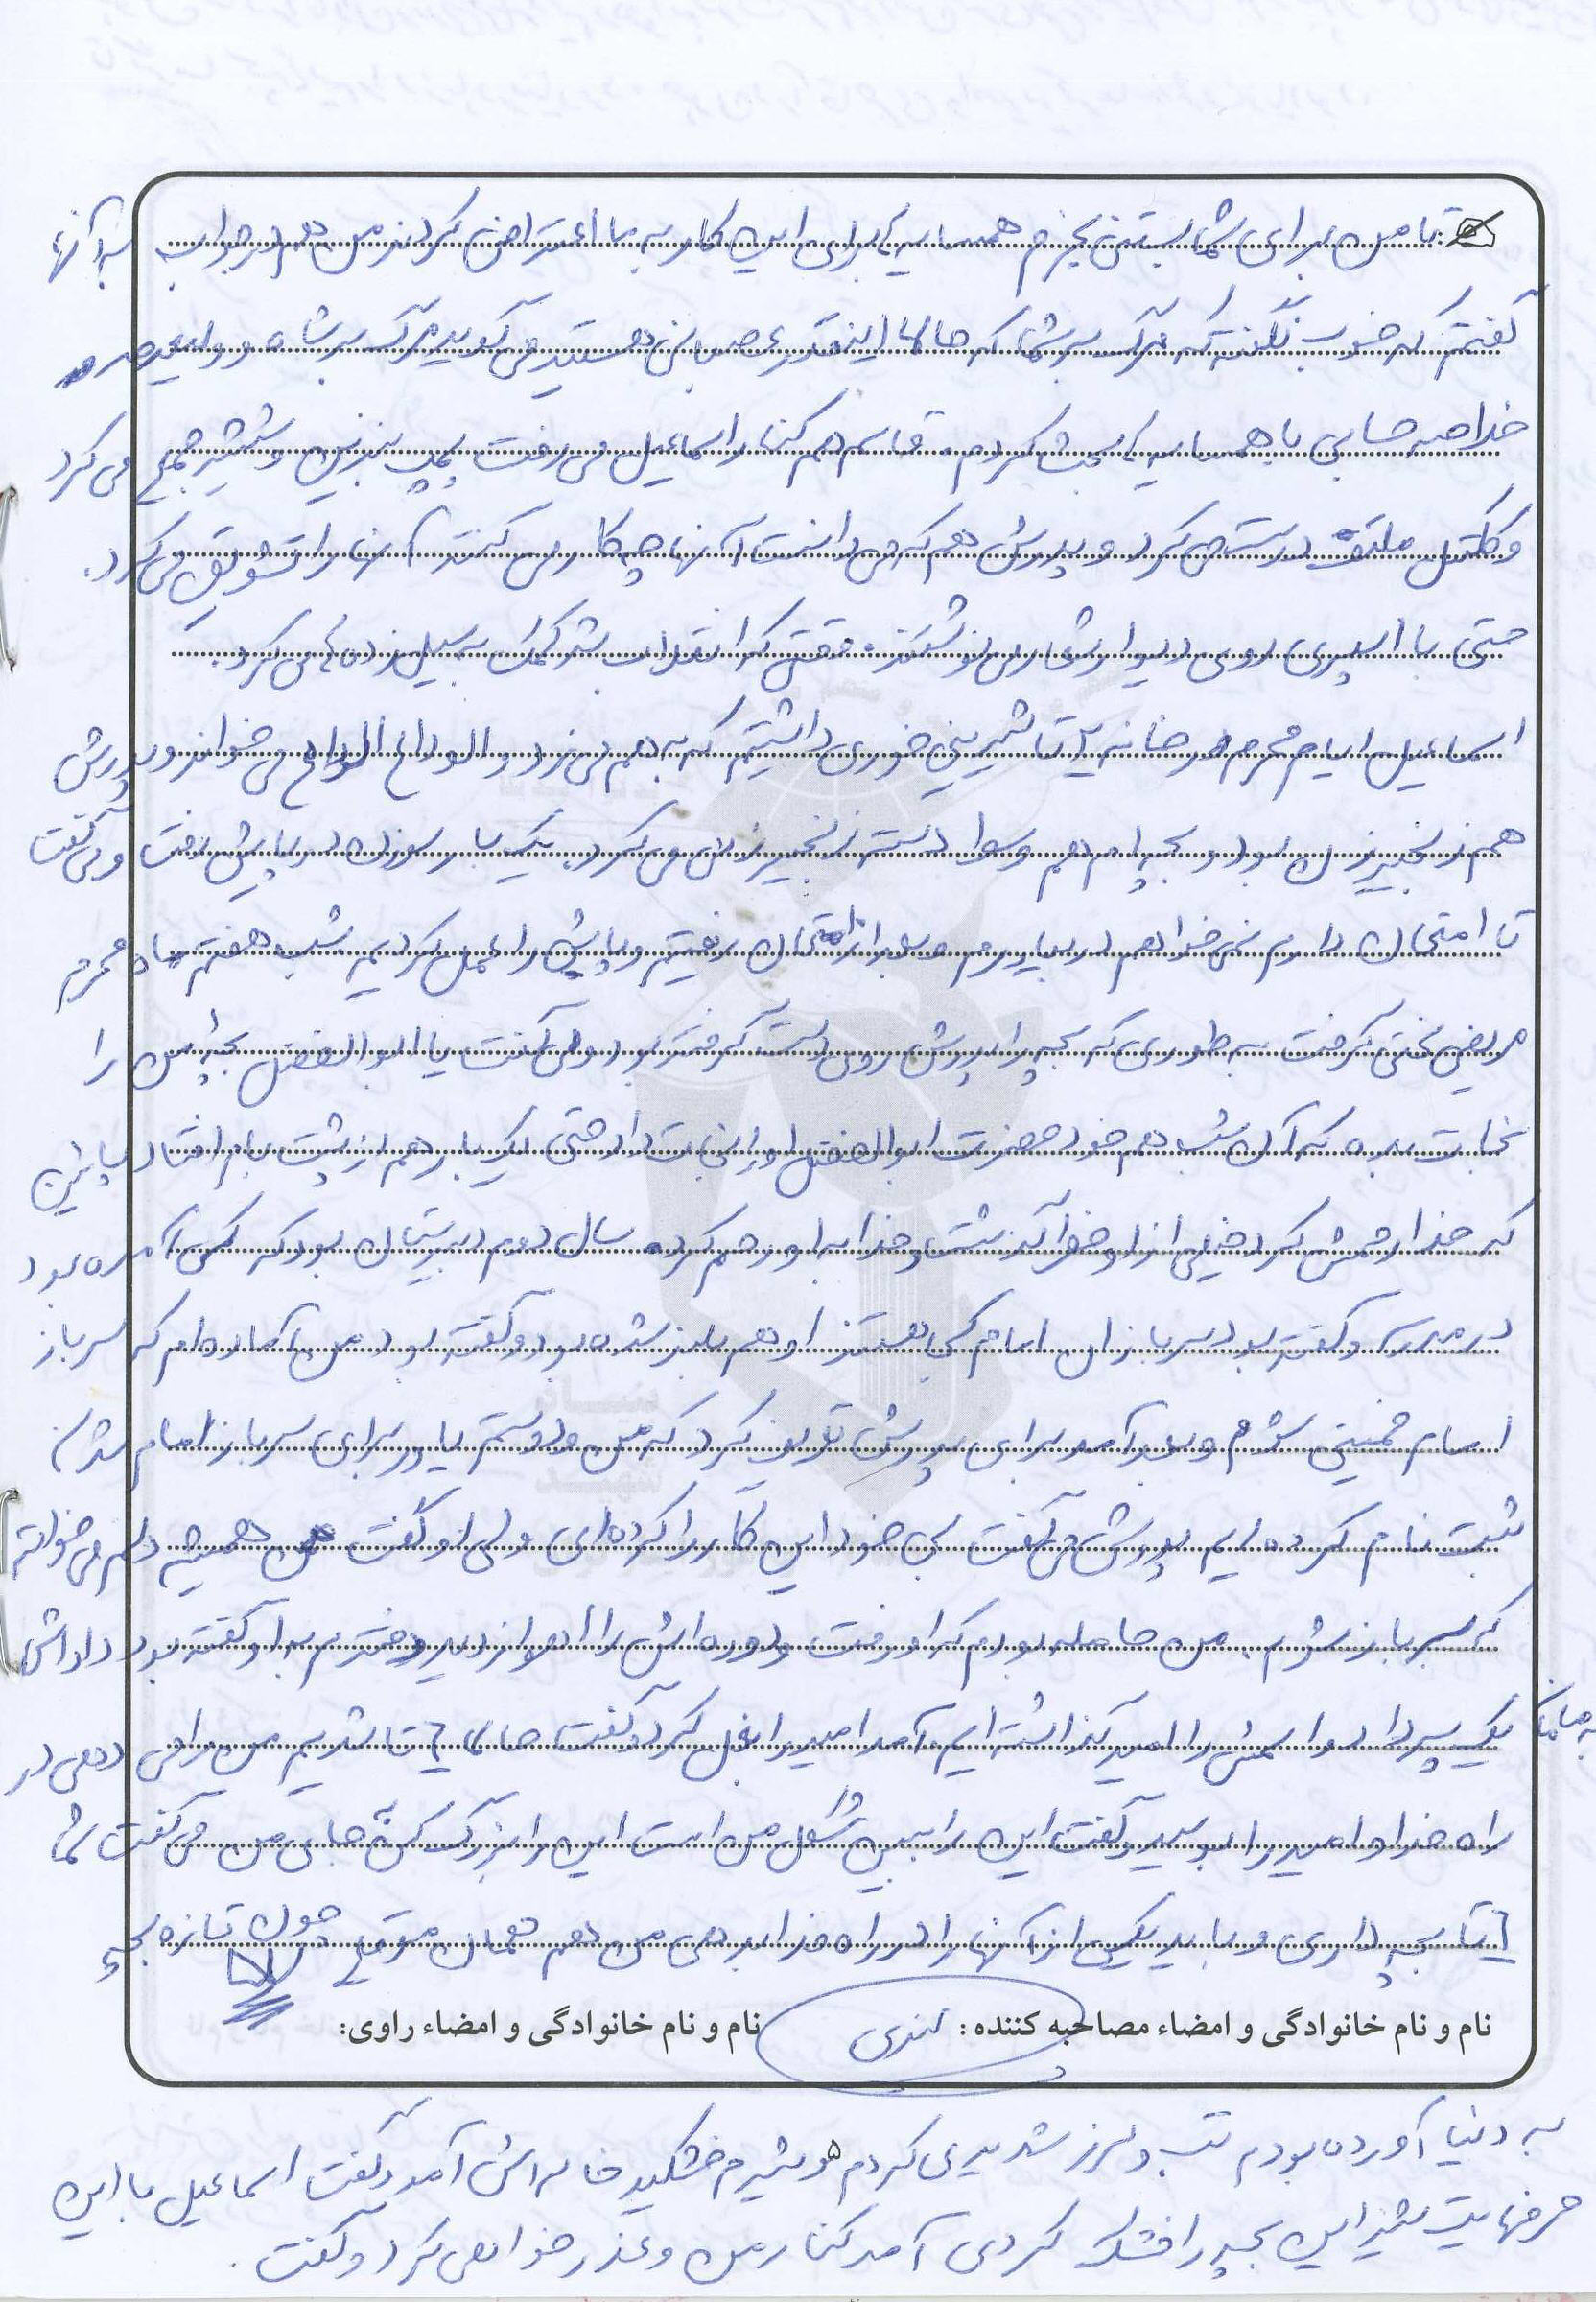 تا من برای شما بستنی بخرم همسایه ها برای این کار به ما اعتراض کردند من هم در جواب به آنها
گفتم که خوب نگفته که مرگ بر شما که حالا اینقدر عصبانی هستید می گوید مرگ بر شاه و ولیعهد
خلاصه حسابی با همسایه ها بحث کردم. قاسم هم کنار اسماعیل می رفت پمپ بنزین و شیشه جمع می کرد
و کوکتل ملتف درست می کرد و پدرش هم که می دانست آنها چه کار می کنند آنها را تشویق می کرد.
حتی با اسپری روی دیوار شعار می نوشتند. وقتی که انقلاب شد کمک به سیل زده ها می کرد.
اسماعیل ایام محرم در خانه یک تا شیرینی خوری داشتیم که به هم می زد و الوداع الوداع می خواند و پدرش
هم زنجیرزن بود و بچه ام هم وسط دسته زنجیر زنی می کرد. یک بار سوزن در پایش رفت و می گفت
تا امتحان دارم نمی خواهم در بیاورم و بعد از امتحان رفتیم و پایش را عمل کردیم شب هفتم ماه محرم
مریضی سختی گرفت به طوری که بچه را پدرش روی دست گرفته بود و می گفت یا ابوالفضل بچه من را
نجات بده که آن شب هم خود حضرت ابوالفضل او را نجات داد حتی یک بار هم از پشت بام افتاد پائین
که خدا رحمش کرد خیلی از او خطر گذشت و خدا به او رحم کرد. سال دوم دبیرستان بود که کسی آمده بود
در مدرسه و گفته بود سربازان امام کی هستند او هم بلند شده بود و گفته بود من آماده ام که سرباز
امام خمینی شوم و بعد آمد برای پدرش تعریف کرد که من و دوستم یاور برای سرباز امام شدن
ثبت نام کرده ایم پدرش می گفت بی خود این کار را کرده ای ولی او گفت من همیشه دلم می خواسته
که سرباز شوم. من حامله بودم که او رفت و دوره اش را اهواز دید و دخترم به او گفته بود داداش
مامان یک پسر دارد و اسمش را امیر گذاشته ایم. آمد امیر را بغل کرد و گفت حالا ۴ تا شدیم من را می دهی در
راه خدا و امیر را بوسید و گفت این را ببین شکل من است این را بزرگ کن جای من می گفت شما
۴ تا بچه داری و باید یکی از آنها را در راه خدا بدهی من هم همان موقع چون تازه بچه
نام و نام خانوادگی و امضاء مصاحبه کننده: نام و نام خانوادگی و امضاء راوی:
به دنیا آورده بودم تب و لرز شدیدی کردم و شیرم خشکید خاله اش آمد و گفت اسماعیل با این
حرفهایت شیر این بچه را خشک کردی آمد کنار من و عذرخواهی کرد و گفت.